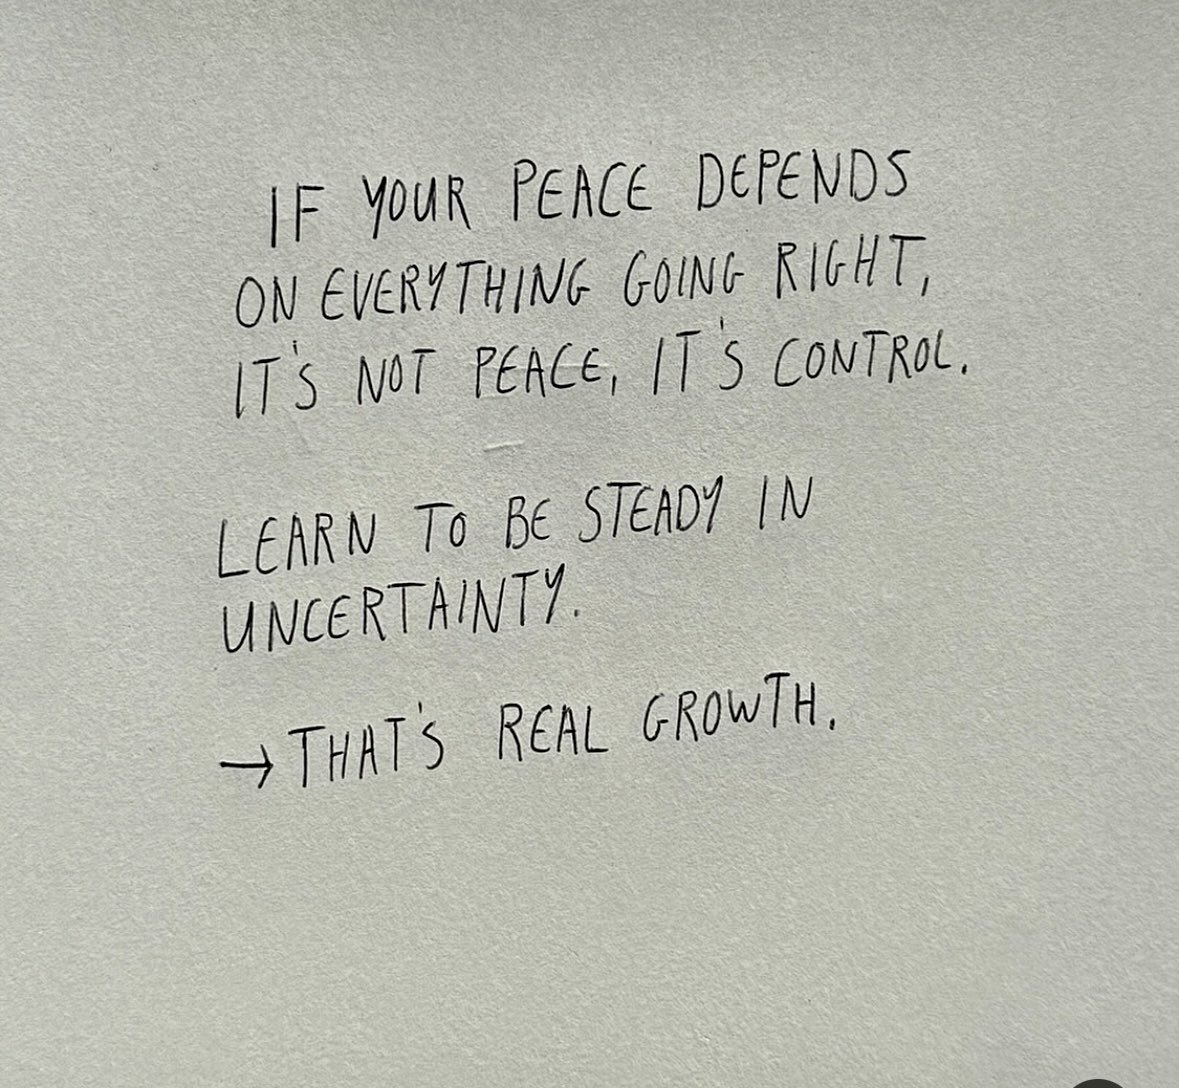 IF YOUR PEACE DEPENDS
ON EVERYTHING GOING RIGHT,
IT'S NOT PEACE, IT'S CONTROL.
LEARN TO BE STEADY IN
UNCERTAINTY.
→ THAT'S REAL GROWTH.